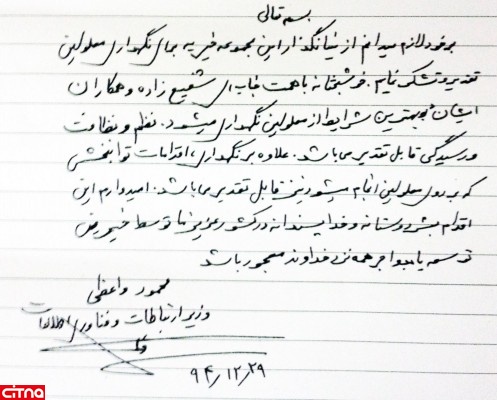 بسمه تعالی
بر خود لازم میدانم از بنیانگذار این مجموعه خیریه برای نگهداری معلولین
تقدیر و تشکر نمایم. خوشبختانه با همت جناب آقای شفیع زاده و همکاران
ایشان به بهترین شرایط از معلولین نگهداری میشود. نظم و نظافت
و رسیدگی قابل تقدیر می باشد. علاوه بر نگهداری، اقدامات توانبخشی
که بر روی معلولین انجام میشود نیز قابل تقدیر می باشد. امیدوارم این
اقدام بشردوستانه و خداپسندانه در کشور عزیز ما توسط خیرین
توسعه یابد و اجر همه نزد خداوند محجور باشد
محمود واعظی
وزیر ارتباطات و فناوری اطلاعات
۹۴/۱۲/۲۹
citna